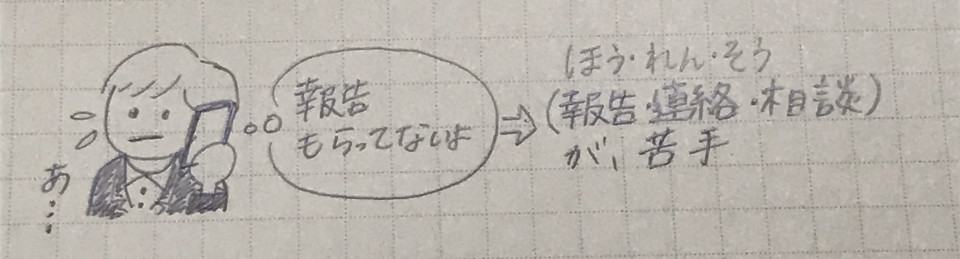 あ…
報告
もらってないよ
⇒
ほう・れん・そう
(報告・連絡・相談)
が、苦手